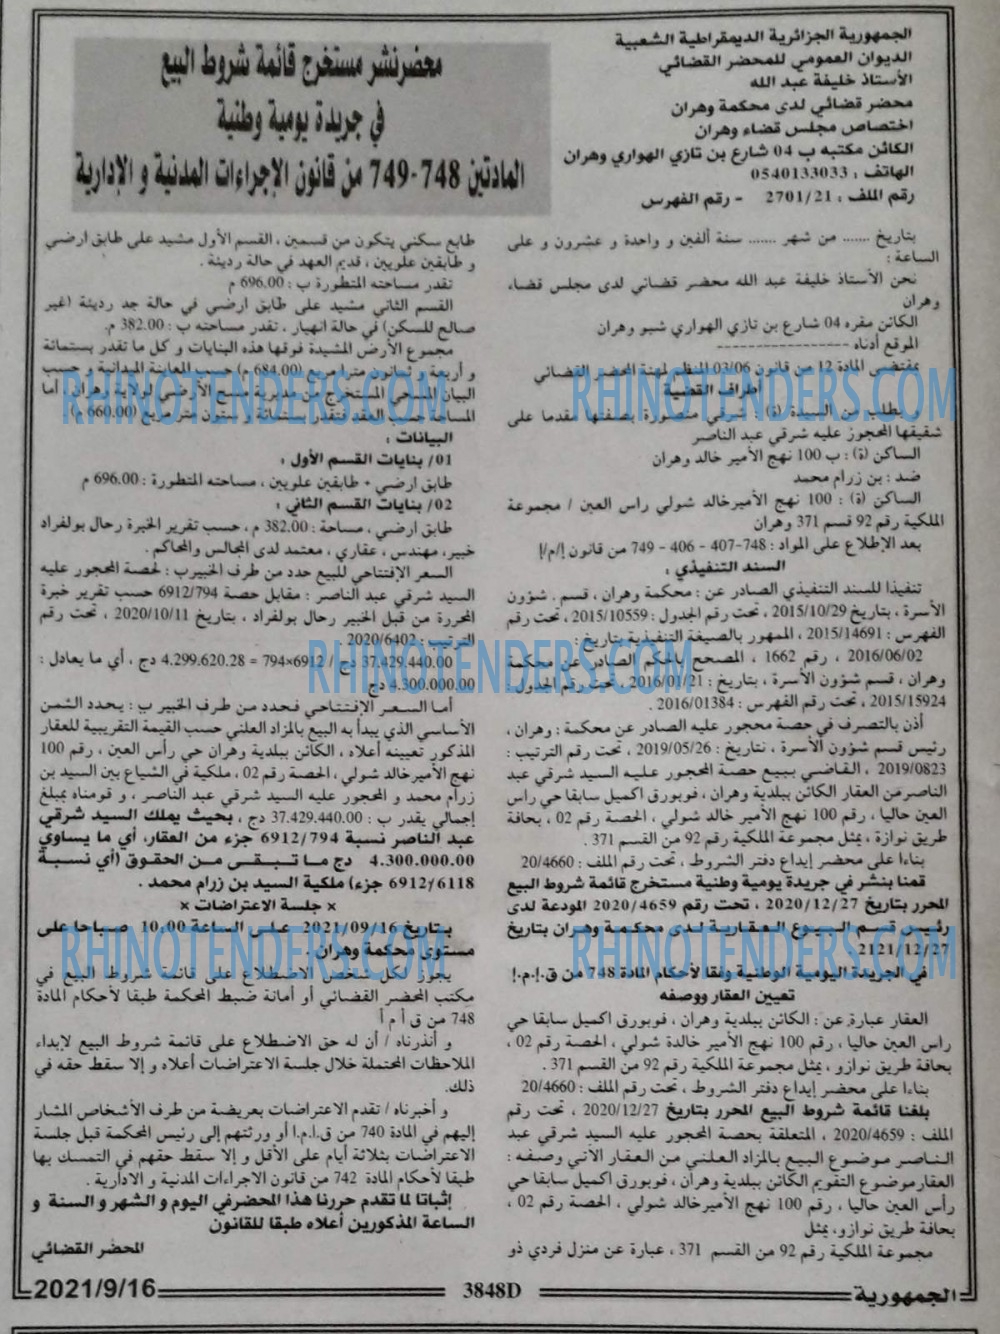 الجمهورية الجزائرية الديمقراطية الشعبية
الديوان العمومي للمحضر القضائي
الأستاذ خليفة عبد الله
محضر قضائي لدى محكمة وهران
اختصاص مجلس قضاء وهران
الكائن مكتبه ب 04 شارع بن تازي الهواري وهران
الهاتف : 0540133033
رقم الملف : 2701/21 - رقم الفهرس
محضر نشر مستخرج قائمة شروط البيع
في جريدة يومية وطنية
المادتين 748-749 من قانون الإجراءات المدنية و الإدارية
بتاريخ ....... من شهر ....... سنة ألفين و واحدة و عشرون و على
الساعة :
نحن الأستاذ خليفة عبد الله محضر قضائي لدى مجلس قضاء
وهران
الكائن مقره 04 شارع بن تازي الهواري شيبو وهران
الموقع أدناه -----------------
بمقتضى المادة 12 من قانون 03/06 المنظم لمهنة المحضر القضائي
أطراف القضية
و بطلب من السيدة (ة) : شرقي منصورة بصفتها مقدما على
شقيقها المحجوز عليه شرقي عبد الناصر
الساكن (ة) : ب 100 نهج الأمير خالد وهران
ضد : بن زرام محمد
الساكن (ة) : 100 نهج الأمير خالد شولي راس العين / مجموعة
الملكية رقم 92 قسم 371 وهران
بعد الإطلاع على المواد : 748-407 - 406 - 749 من قانون إ/م/إ
السند التنفيذي :
تنفيذا للسند التنفيذي الصادر عن : محكمة وهران ، قسم . شؤون
الأسرة ، بتاريخ 2015/10/29 ، تحت رقم الجدول : 2015/10559 ، تحت رقم
الفهرس : 2015/14691 ، الممهور بالصيغة التنفيذية بتاريخ :
2016/06/02 ، رقم 1662 ، المصحح بالحكم الصادر عن محكمة
وهران ، قسم شؤون الأسرة ، بتاريخ : 2016/01/21 ، تحت رقم الجدول :
2015/15924 ، تحت رقم الفهرس : 2016/01384 .
أذن بالتصرف في حصة محجور عليه الصادر عن محكمة : وهران ،
رئيس قسم شؤون الأسرة ، بتاريخ : 2019/05/26 ، تحت رقم الترتيب :
2019/0823 ، القاضي ببيع حصة المحجور عليه السيد شرقي عبد
الناصر من العقار الكائن ببلدية وهران ، فوبورق اكميل سابقا حي راس
العين حاليا ، رقم 100 نهج الأمير خالد شولي ، الحصة رقم 02 ، بحافة
طريق نوازة ، يمثل مجموعة الملكية رقم 92 من القسم 371 .
بناءا على محضر إيداع دفتر الشروط ، تحت رقم الملف : 20/4660
قمنا بنشر في جريدة يومية وطنية مستخرج قائمة شروط البيع
المحرر بتاريخ 2020/12/27 ، تحت رقم 2020/4659 المودعة لدى
رئيس قسم البيوع العقارية لدى محكمة وهران بتاريخ
2121/12/27
في الجريدة اليومية الوطنية وفقا لأحكام المادة 748 من ق.إ.م.إ
تعيين العقار ووصفه
العقار عبارة عن : الكائن ببلدية وهران ، فوبورق اكميل سابقا حي
راس العين حاليا ، رقم 100 نهج الأمير خالدة شولي ، الحصة رقم 02 ،
بحافة طريق نوازو ، يمثل مجموعة الملكية رقم 92 من القسم 371 .
بناءا على محضر إيداع دفتر الشروط ، تحت رقم الملف : 20/4660
بلغنا قائمة شروط البيع المحرر بتاريخ 2020/12/27 ، تحت رقم
الملف : 2020/4659 ، المتعلقة بحصة المحجور عليه السيد شرقي عبد
الناصر موضوع البيع بالمزاد العلني من العقار الآتي وصفه :
العقار موضوع التقويم الكائن ببلدية وهران ، فوبورق اكميل سابقا حي
رأس العين حاليا ، رقم 100 نهج الأمير خالد شولي ، الحصة رقم 02 ،
بحافة طريق نوازو، يمثل
مجموعة الملكية رقم 92 من القسم 371 ، عبارة عن منزل فردي ذو
طابع سكني يتكون من قسمين ، القسم الأول مشيد على طابق ارضي
و طابقين علويين ، قديم العهد في حالة رديئة .
تقدر مساحته المتطورة ب : 696.00 م
القسم الثاني مشيد على طابق ارضي في حالة جد رديئة (غير
صالح للسكن) في حالة انهيار ، تقدر مساحته ب : 382.00 م.
مجموع الأرض المشيدة فوقها هذه البنايات و كل ما تقدر بستمائة
و أربعة و ثمانون مترا مربع (684.00 م) حسب المعاينة الميدانية و حسب
البيان المسحي المستخرج من مديرية مسح الأرضي لولاية وهران ، أما
المساحة حسب العقد فتقدر بستمائة و ستون متر مربع (660.00 م)
البيانات :
01/ بنايات القسم الأول :
طابق ارضي + طابقين علويين ، مساحته المتطورة : 696.00 م
02/ بنايات القسم الثاني :
طابق ارضي ، مساحة : 382.00 م ، حسب تقرير الخبرة رحال بولفراد
خبير، مهندس ، عقاري ، معتمد لدى المجالس والمحاكم .
السعر الإفتتاحي للبيع حدد من طرف الخبيرب : لحصة المحجور عليه
السيد شرقي عبد الناصر : مقابل حصة 6912/794 حسب تقرير خبرة
المحررة من قبل الخبير رحال بولفراد ، بتاريخ 2020/10/11 ، تحت رقم
الترتيب : 2020/6402
37.429.440.00 دج / 6912×794 = 4.299.620.28 دج ، أي ما يعادل :
4.300.000.00 دج
أما السعر الإفتتاحي فحدد من طرف الخبير ب : يحدد الثمن
الأساسي الذي يبدأ به البيع بالمزاد العلني حسب القيمة التقريبية للعقار
المذكور تعيينه أعلاه ، الكائن ببلدية وهران حي رأس العين ، رقم 100
نهج الأمير خالد شولي ، الحصة رقم 02 ، ملكية في الشياع بين السيد بن
زرام محمد و المحجور عليه السيد شرقي عبد الناصر ، و قومناه بمبلغ
إجمالي يقدر ب : 37.429.440.00 دج ، بحيث يملك السيد شرقي
عبد الناصر نسبة 6912/794 جزء من العقار، أي ما يساوي
4.300.000.00 دج ما تبقى من الحقوق (أي نسبة
6912/6118 جزء) ملكية السيد بن زرام محمد .
× جلسة الاعتراضات ×
بتاريخ 2021/09/16 على الساعة 10:00 صباحا على
مستوى محكمة وهران .
يجوز لكل شخص الاضطلاع على قائمة شروط البيع في
مكتب المحضر القضائي أو أمانة ضبط المحكمة طبقا لأحكام المادة
748 من ق أ م أ
و أنذرناه / أن له حق الاضطلاع على قائمة شروط البيع لإبداء
الملاحظات المحتملة خلال جلسة الاعتراضات أعلاه و إلا سقط حقه في
ذلك.
و أخبرناه / تقدم الاعتراضات بعريضة من طرف الأشخاص المشار
إليهم في المادة 740 من ق.إ.م.إ أو ورثتهم إلى رئيس المحكمة قبل جلسة
الاعتراضات بثلاثة أيام على الأقل و إلا سقط حقهم في التمسك بها
طبقا لأحكام المادة 742 من قانون الاجراءات المدنية و الادارية .
إثباتا لما تقدم حررنا هذا المحضر في اليوم و الشهر و السنة و
الساعة المذكورين أعلاه طبقا للقانون
المحضر القضائي
الجمهورية
3848D
2021/9/16
RHINOTENDERS.COM
RHINOTENDERS.COM
RHINOTENDERS.COM
RHINOTENDERS.COM
RHINOTENDERS.COM